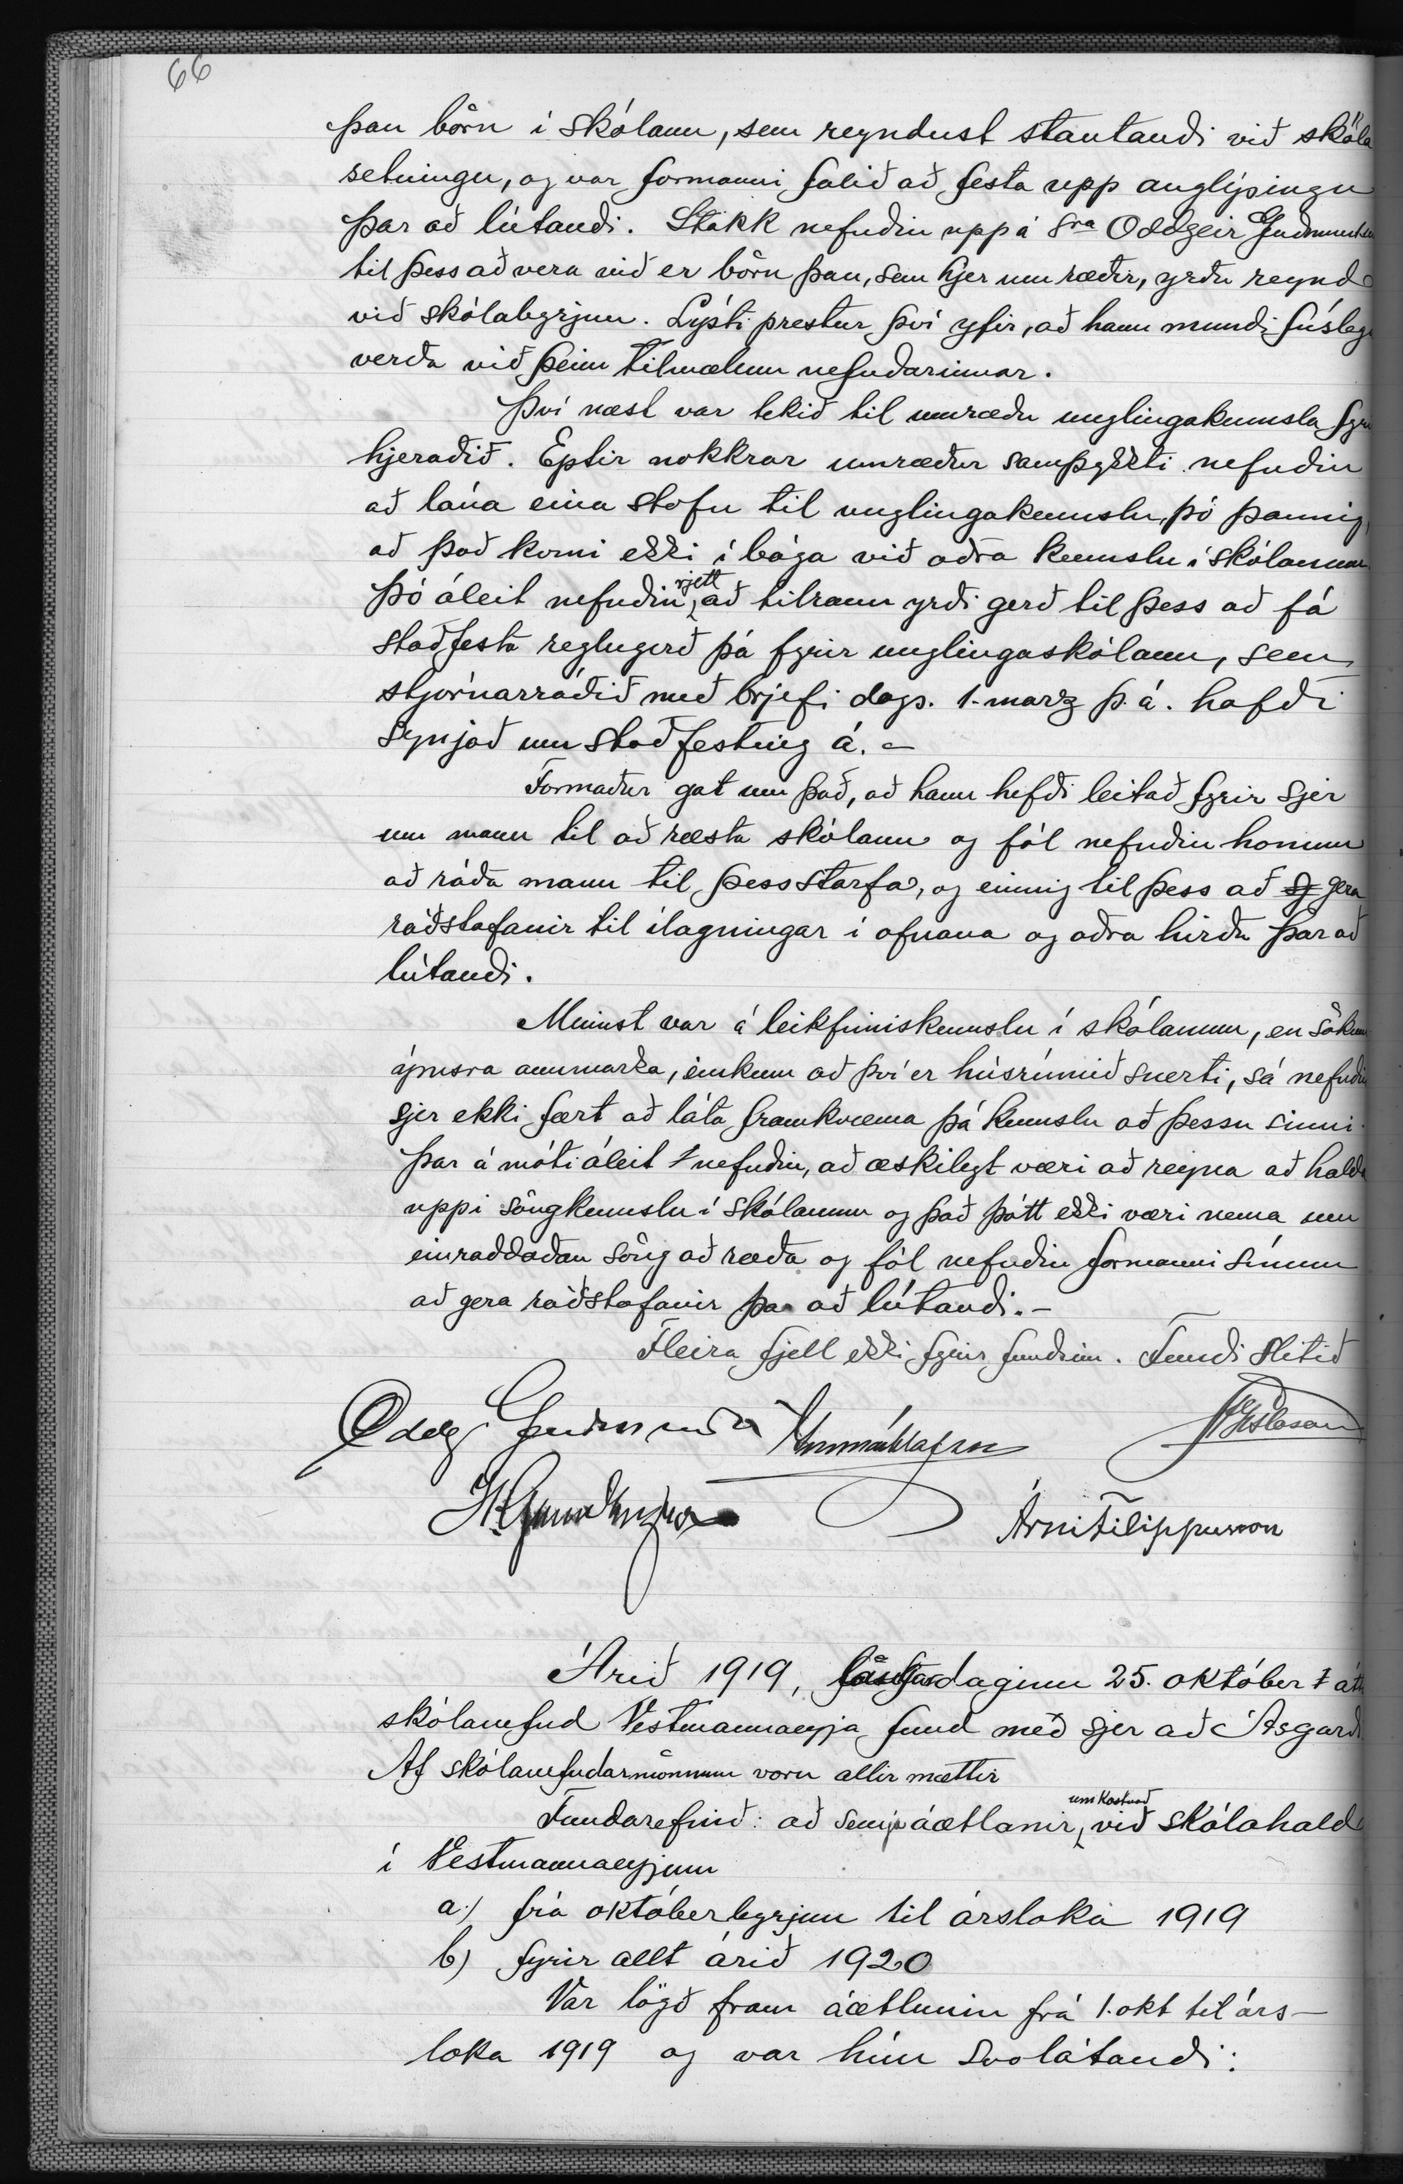 66
þau börn í skólann, sem reyndust stautandi við skóla
setningu, og var formanni falið að festa upp auglýsingu
þar að lútandi. Stakk nefndin uppá sra Oddgeir Guðmundsen
til þess að vera við er börn þau, sem hjer um ræðir, yrðu reynd
við skólabyrjun. Lýsti prestur því yfir, að hann mundi fúslega
verða við þeim tilmælum nefndarinnar.
Því næst var tekið til umræðu unglingakennsla fyrir
hjeraðið. Eptir nokkrar umræður samþykkti nefndin
að lána eina stofu til unglingakennslu, þó þannig,
að það komi ekki í bága við aðra kennslu í skólanum.
Þó áleit nefndin rjett að tilraun yrði gerð til þess að fá
staðfesta reglugerð þá fyrir unglingaskólann, sem
stjórnarráðið með brjefi dags. 1. marz þ. á. hafði
synjað um staðfesting á. –
Formaður gat um það, að hann hefði leitað fyrir sjer
um mann til að ræsta skólann og fól nefndin honum
að ráða mann til þess starfa, og einnig til þess að gera
ráðstafanir til ílagningar í ofnana og aðra hirðu þar að
lútandi.
Minnst var á leikfimiskennslu í skólanum, en sökum
ýmsra annmarka, einkum að því er húsrúmið snerti, sá nefndin
sjer ekki fært að láta framkvæma þá kennslu að þessu sinni.
Þar á móti áleit nefndin, að æskilegt væri að reyna að halda
uppi söngkennslu í skólanum og það þótt ekki væri nema um
einraddaðan söng að ræða og fól nefndin formanni sínum
að gera ráðstafanir þar að lútandi. –
Fleira fjell ekki fyrir fundinn. Fundi slitið
Oddg Guðmunds
Árni Filippusson
Árið 1919, laugardaginn 25. október átti
skólanefnd Vestmannaeyja fund með sjer að Ásgarði
Af skólanefndarmönnum voru allir mættir
Fundarefnið: að semja áætlanir umkostnað við skólahald
í Vestmannaeyjum
a) frá októberbyrjun til ársloka 1919
b) fyrir allt árið 1920
Var lögð fram áætlunin frá 1. okt til árs-
loka 1919 og var hún svolátandi: